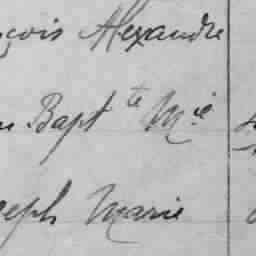 çois Alexandre
n Bapt te M ie
seph Marie